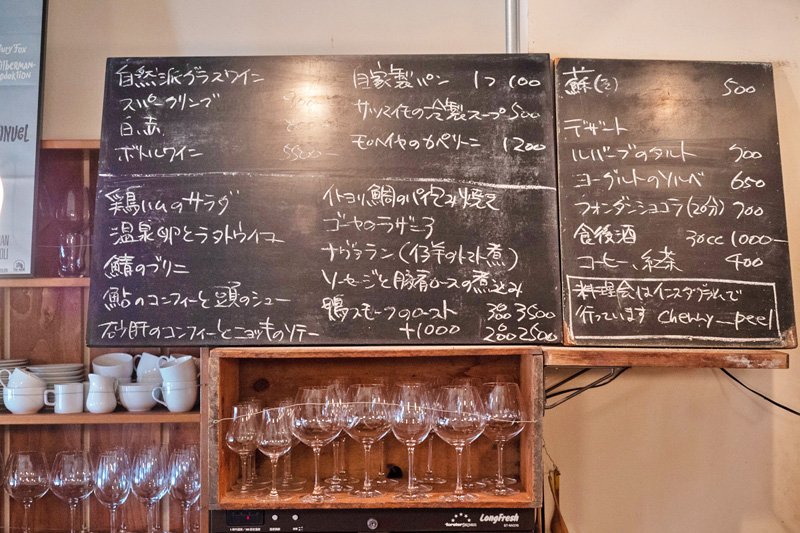 July Fox
自然派グラスワイン
スパークリング
白赤
ボトルワイン 5500ー
自家製パン 1つ 100
サツマイモの冷製スープ 500
モロヘイヤのカペリーニ 1200
鶏ハムのサラダ
温泉卵とラタトゥイユ
鯖のブリニ
鮎のコンフィーと頭のシュー
砂肝のコンフィーとニョッキのソテー
イトヨリ鯛のパイ包み焼き
ゴーヤのラザニア
ナヴァラン(仔羊のトマト煮)
ソーセージと豚肩ロースの煮込み
鴨スモークのロースト 3品 3500
+1000 2品 2500
蘇 500
デザート
ルバーブのタルト 700
ヨーグルトのソルベ 650
フォンダンショコラ(20分) 700
食後酒 30cc 1000ー
コーヒー、紅茶 400
料理会はインスタグラムで
行っています cherry_peel
forsterjapan
LongFresh